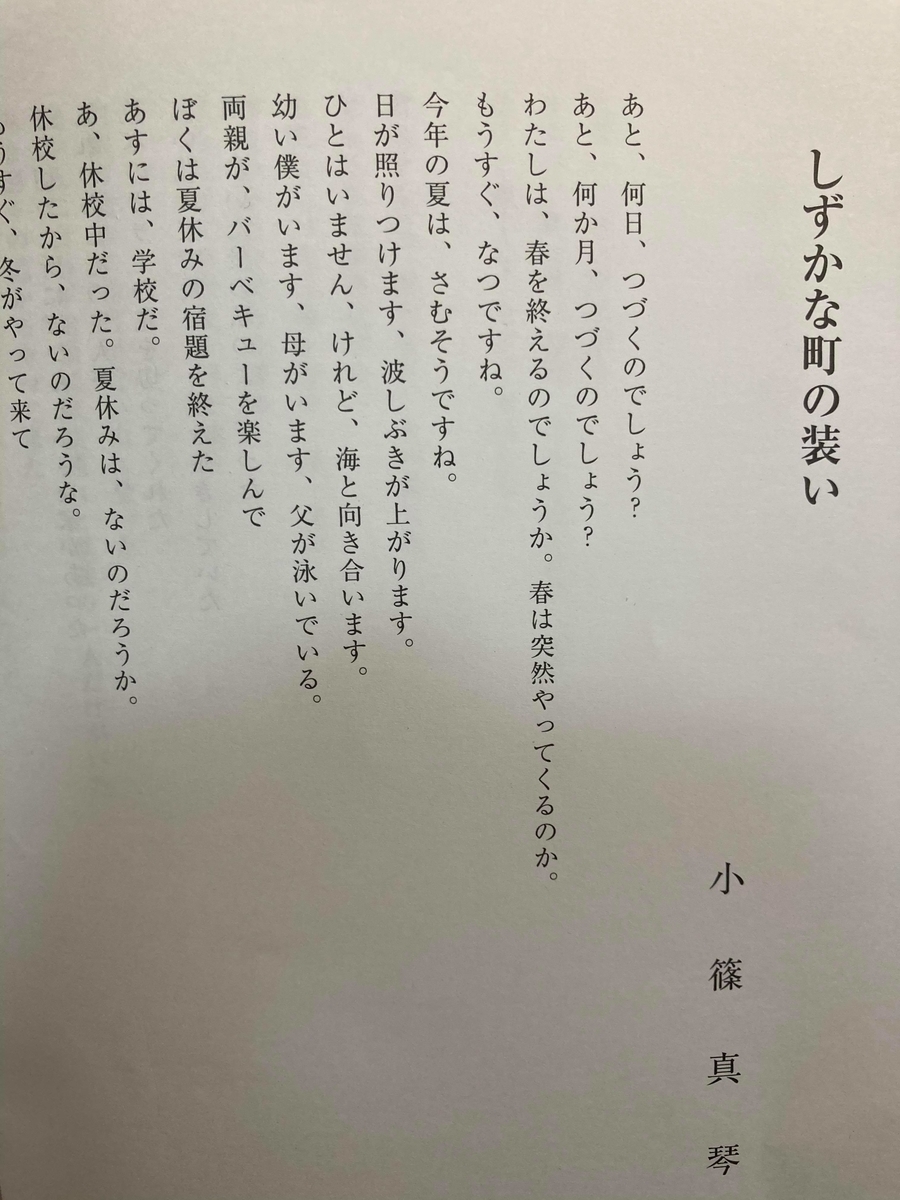 しずかな町の装い
小篠真琴
あと、何日、つづくのでしょう？
あと、何か月、つづくのでしょう？
わたしは、春を終えるのでしょうか。春は突然やってくるのか。
もうすぐ、なつですね。
今年の夏は、さむそうですね。
日が照りつけます、波しぶきが上がります。
ひとはいません、けれど、海と向き合います。
幼い僕がいます、母がいます、父が泳いでいる。
両親が、バーベキューを楽しんで
ぼくは夏休みの宿題を終えた
あすには、学校だ。
あ、休校中だった。夏休みは、ないのだろうか。
休校したから、ないのだろうな。
もうすぐ、冬がやって来て